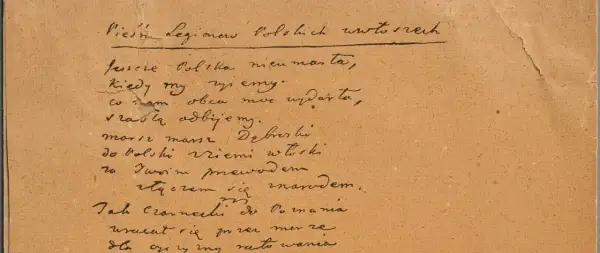 Pieśń Legionow Polskich wwłoszech
Jescze Polska nieumarła,
kiedy my zyiemy.
co nam obca moc wydarła,
szablą odbijemy.
marsz marsz Dąbroski
do Polski zziemi włoski
za Twoim przewodem
złączem się znarodem.
Jak Czarnecki do Poznania
wracał się przez morze
dla oyczyzny ratowania